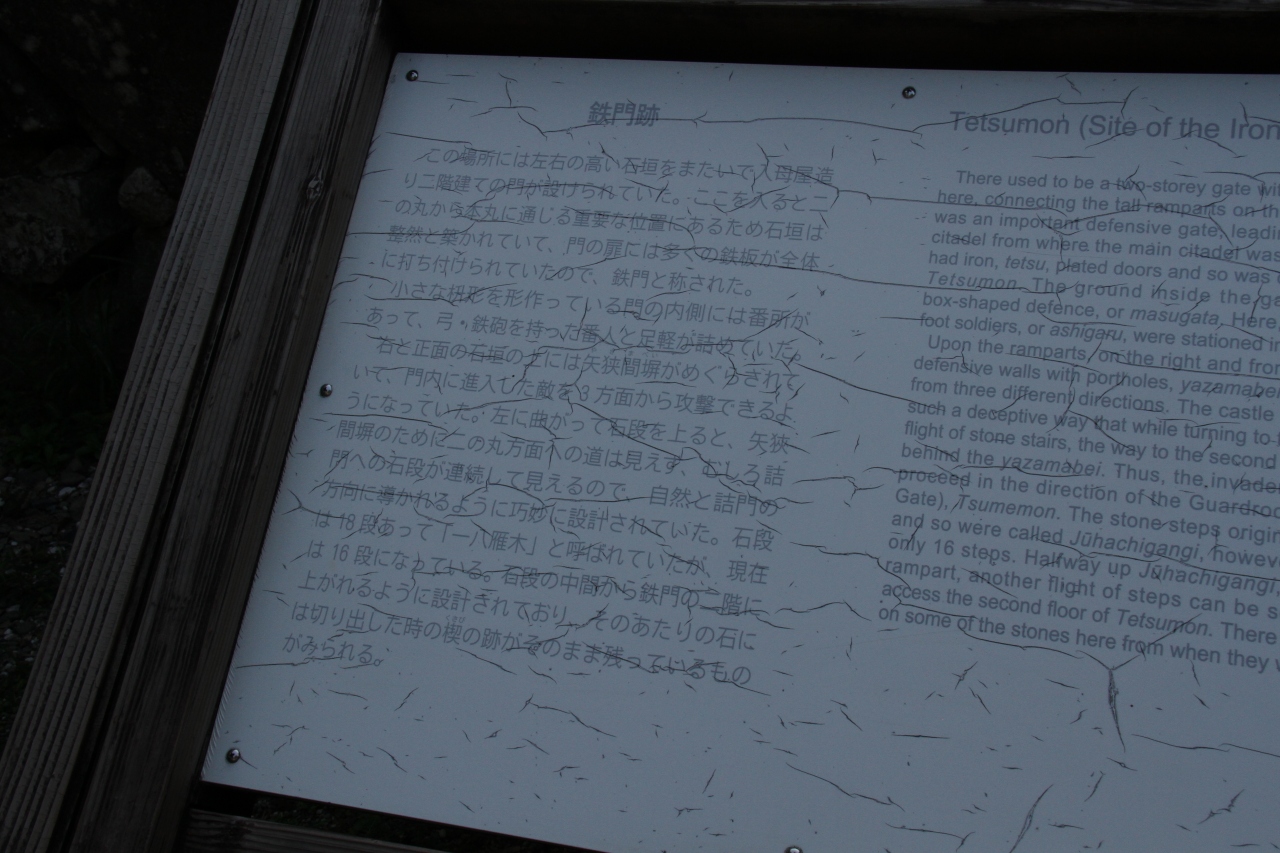 鉄門跡
この場所には左右の高い石垣をまたいで入母屋造
り二階建ての門が設けられていた。ここを入ると二
の丸から本丸に通じる重要な位置にあるため石垣は
整然と築かれていて、門の扉には多くの鉄板が全体
に打ち付けられていたので、鉄門と称された。
小さな枡形を形作っている門の内側には番所が
あって、弓・鉄砲を持った番人と足軽が詰めていた。
右と正面の石垣の上には矢狭間塀がめぐらされて
いて、門内に進入した敵を3方面から攻撃できるよ
うになっていた。左に曲がって石段を上ると、矢狭
間塀のために二の丸方面への道は見えず、むしろ詰
門への石段が連続して見えるので、自然と詰門の
方向に導かれるように巧妙に設計されていた。石段
は18段あって「一八雁木」と呼ばれていたが、現在
は16段になっている。石段の中間から鉄門の二階に
上がれるように設計されており、そのあたりの石に
は切り出した時の楔の跡がそのまま残っているもの
がみられる。
Tetsumon (Site of the Iron
There used to be a two-storey gate
here, connecting the tall ramparts on
was an important defensive gate, leadi
citadel from where the main citadel was
had iron, tetsu, plated doors and so was
Tetsumon. The ground inside the
box-shaped defence, or masugata. Here
foot soldiers, or ashigaru, were stationed
Upon the ramparts, on the right and
defensive walls with portholes, yazamabe
from three different directions. The castle
such a deceptive way that while turning to
flight of stone stairs, the way to the second
behind the yazamabei. Thus, the invade
proceed in the direction of the Guardro
Gate), Tsumemon. The stone steps origin
and so were called Jūhachigangi, howev
only 16 steps. Halfway up Jūhachigangi,
rampart, another flight of steps can be
access the second floor of Tetsumon. There
on some of the stones here from when they